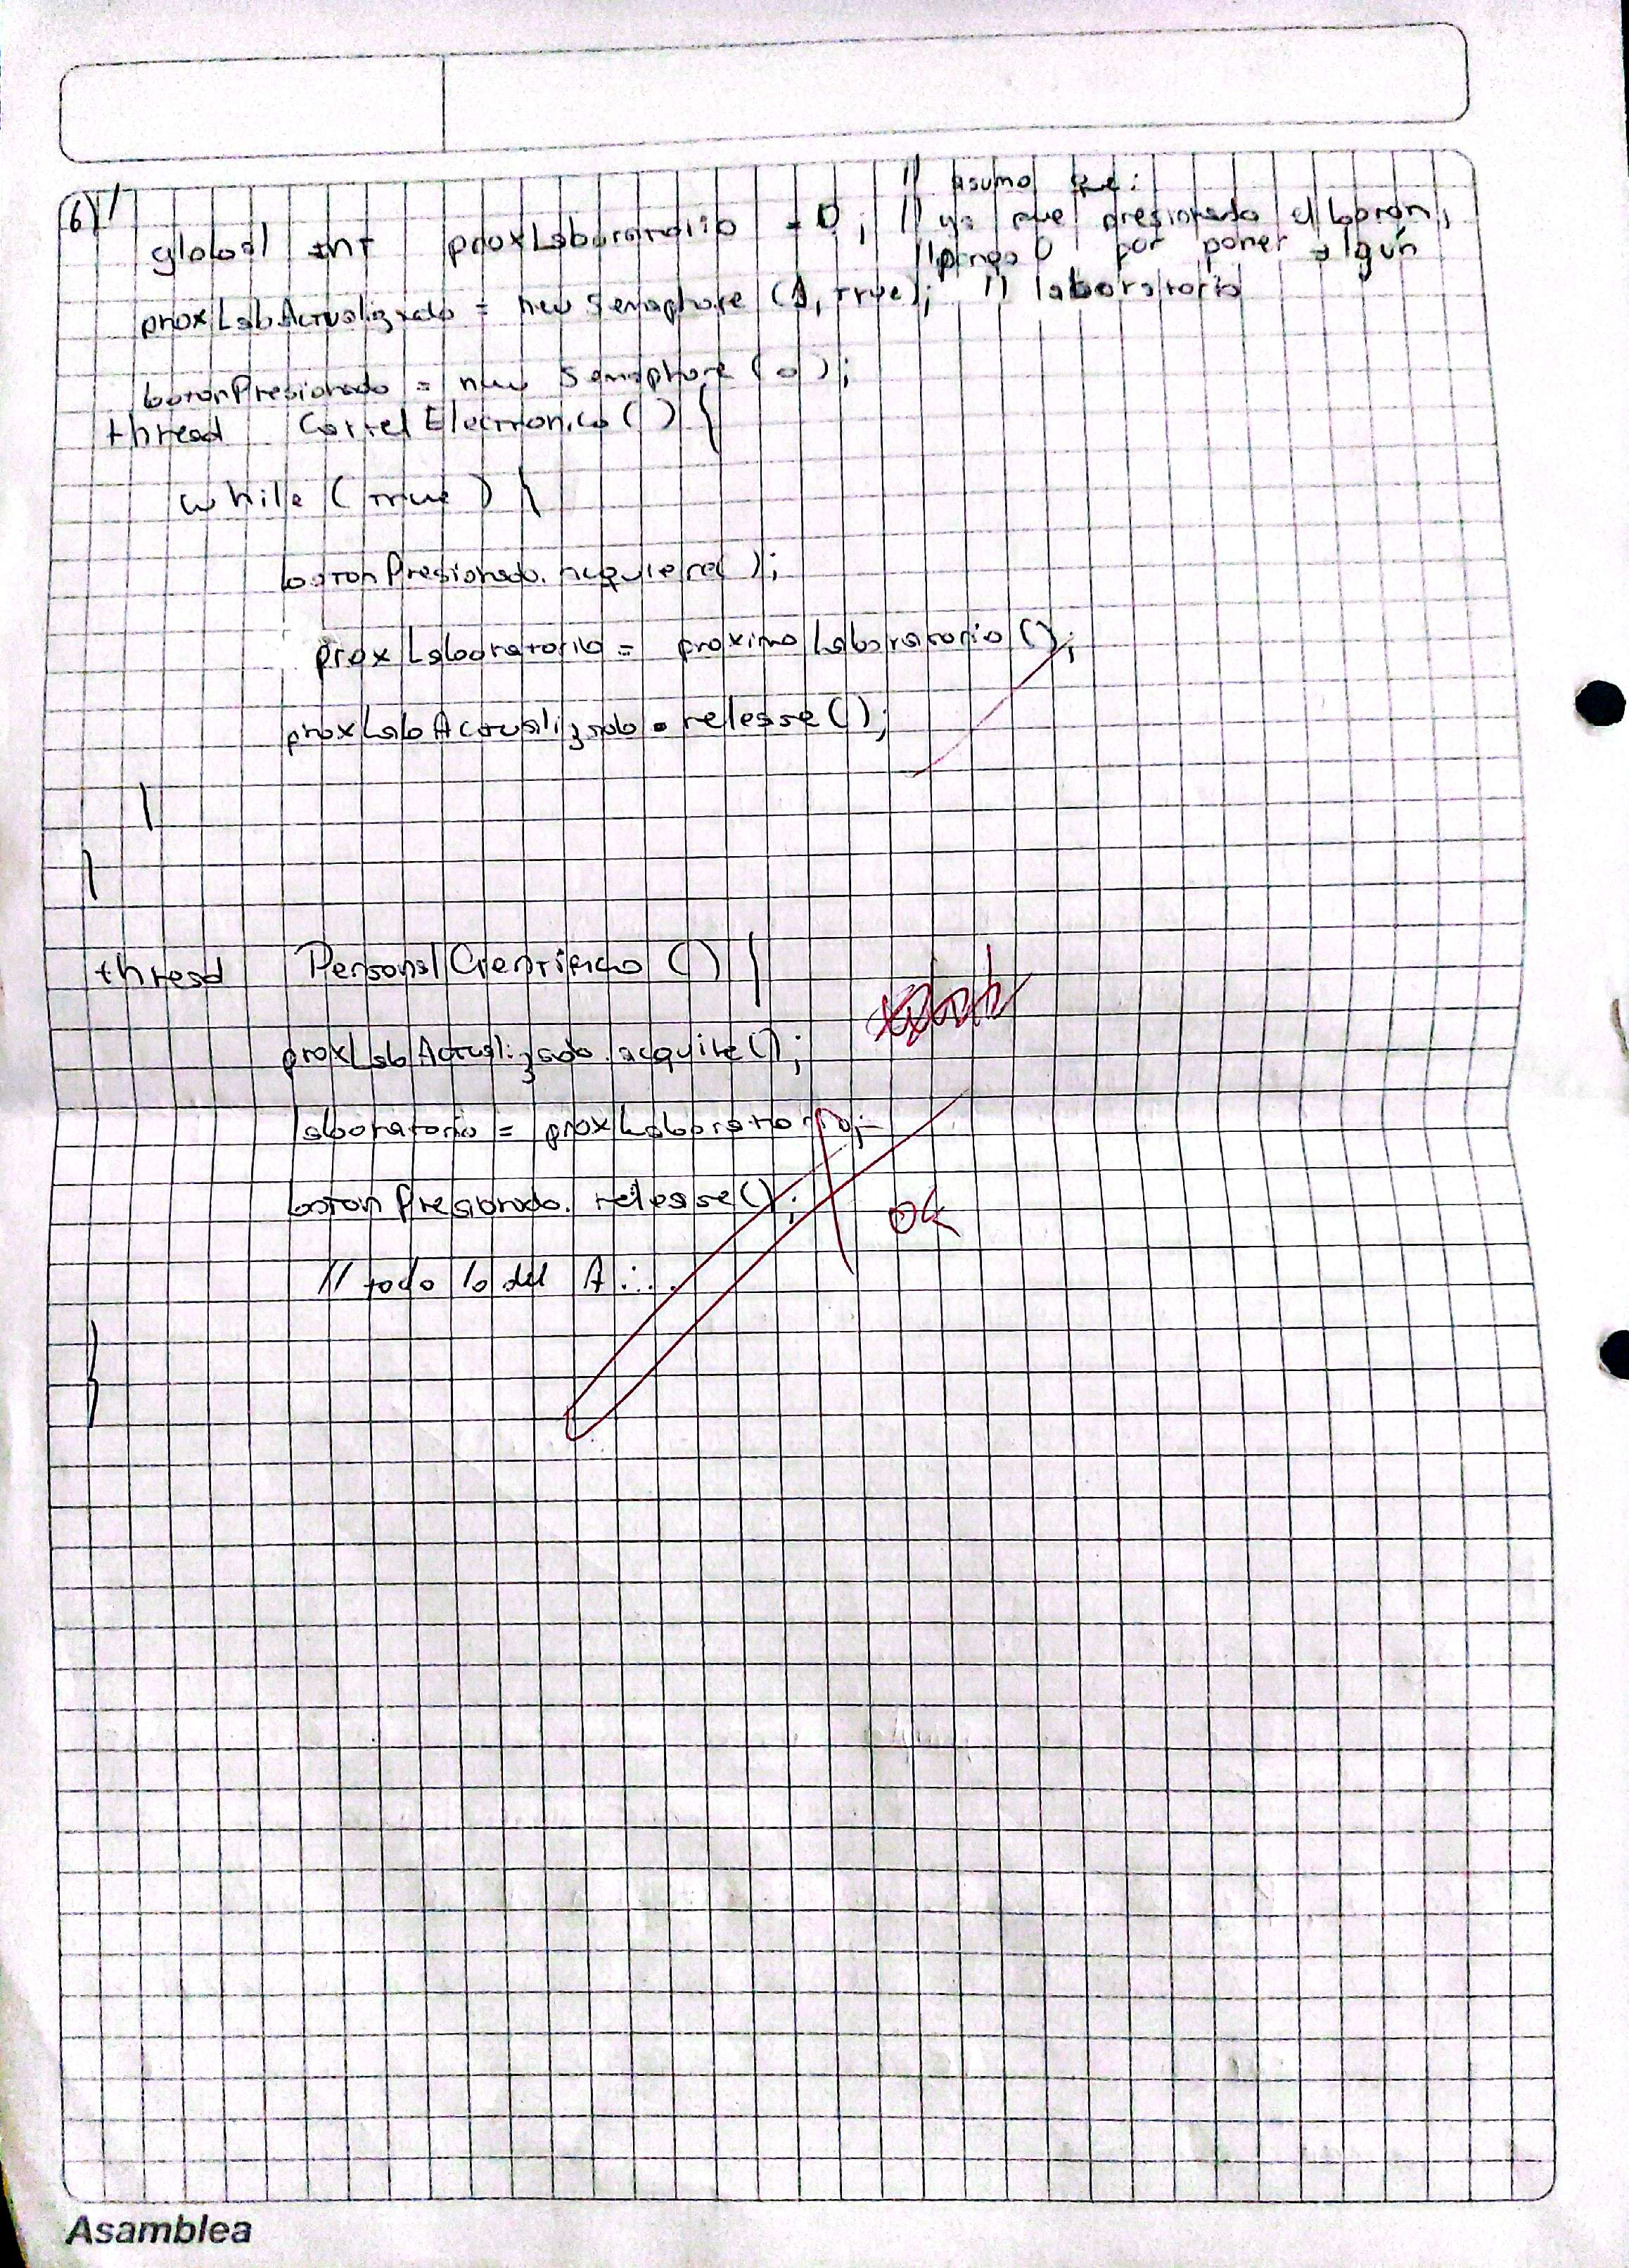 6)
// asumo que:
global int proxLaboratorio = 0; // ya fue presionado el boton,
// pongo 0 por poner algún
proxLabActualizado = new Semaphore (1, true); // laboratorio
botonPresionado = new Semaphore (0);
thread CartelElectronico() {
while (true) {
botonPresionado.acquiere();
proxLaboratorio = proximoLaboratorio();
proxLabActualizado.release();
}
}
thread PersonalCientifico () {
proxLabActualizado.acquire();
laboratorio = proxLaboratorio;
botonPresionado.release();
ok
// todo lo del A...
}
Asamblea